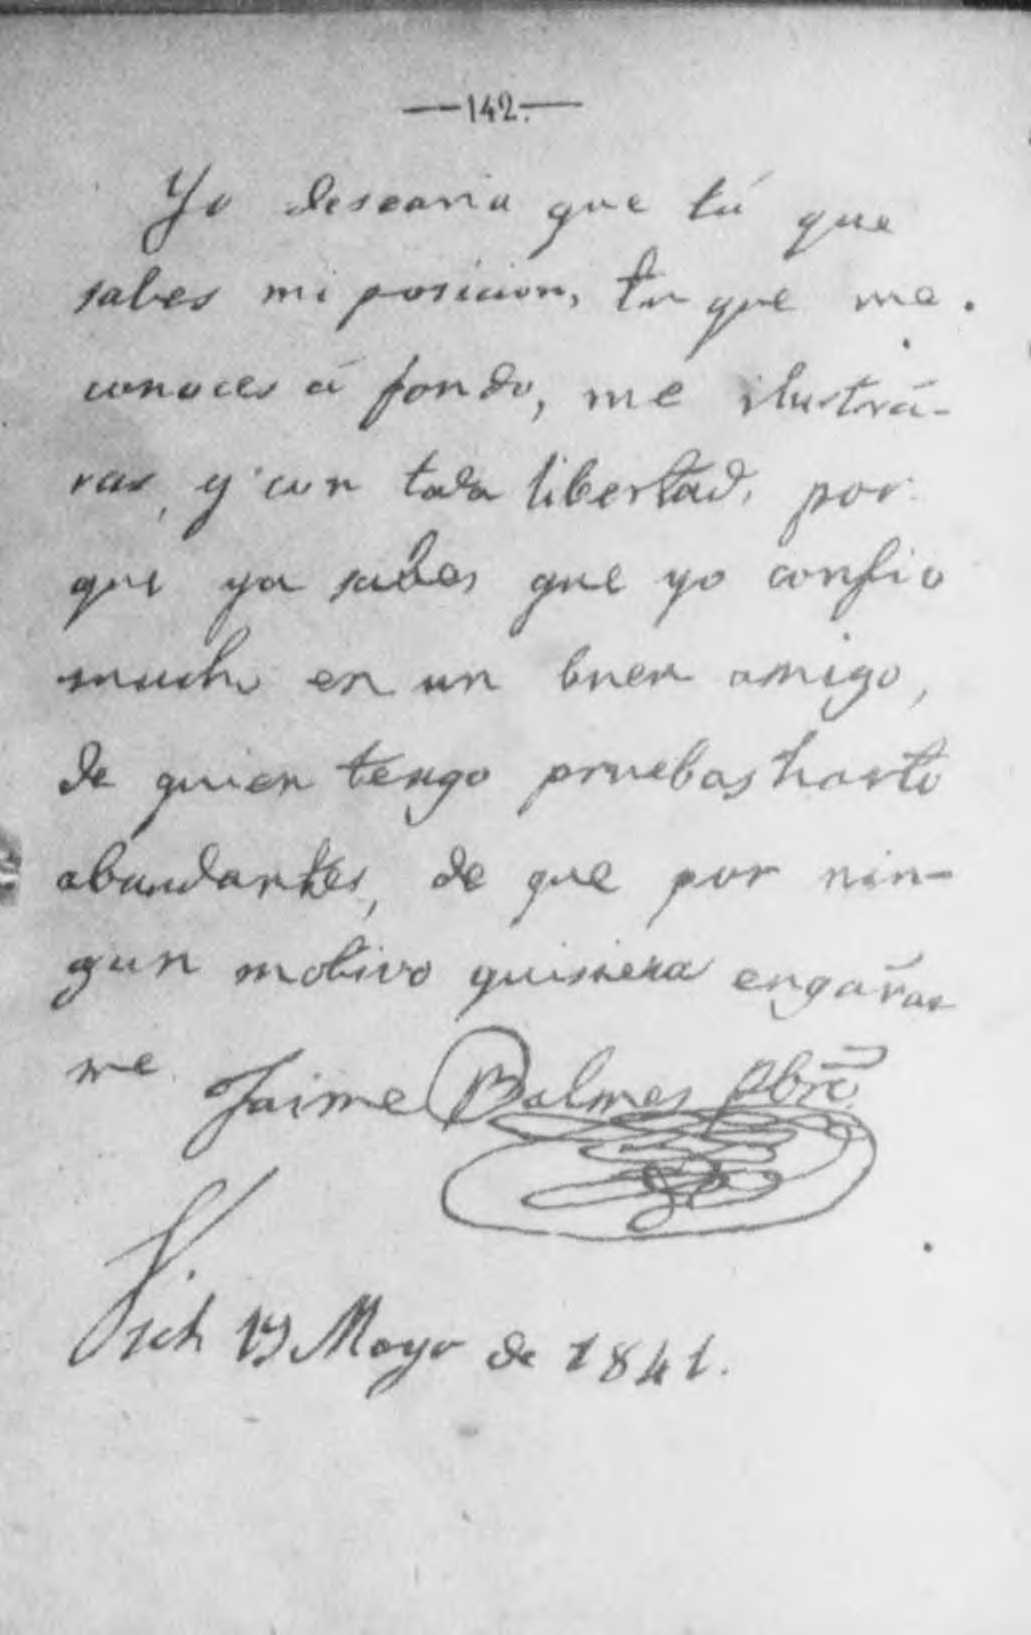 —142.—
Yo desearia que tú que
sabes mi posicion, tu que me
conoces á fondo, me ilustrá-
ras, y con toda libertad, por
que ya sabes que yo confio
mucho en un buen amigo,
de quien tengo pruebas harto
abundantes, de que por nin-
gun motivo quisiera engañar
me. Jaime Balmes Pbro.
Vich Mayo de 1841.